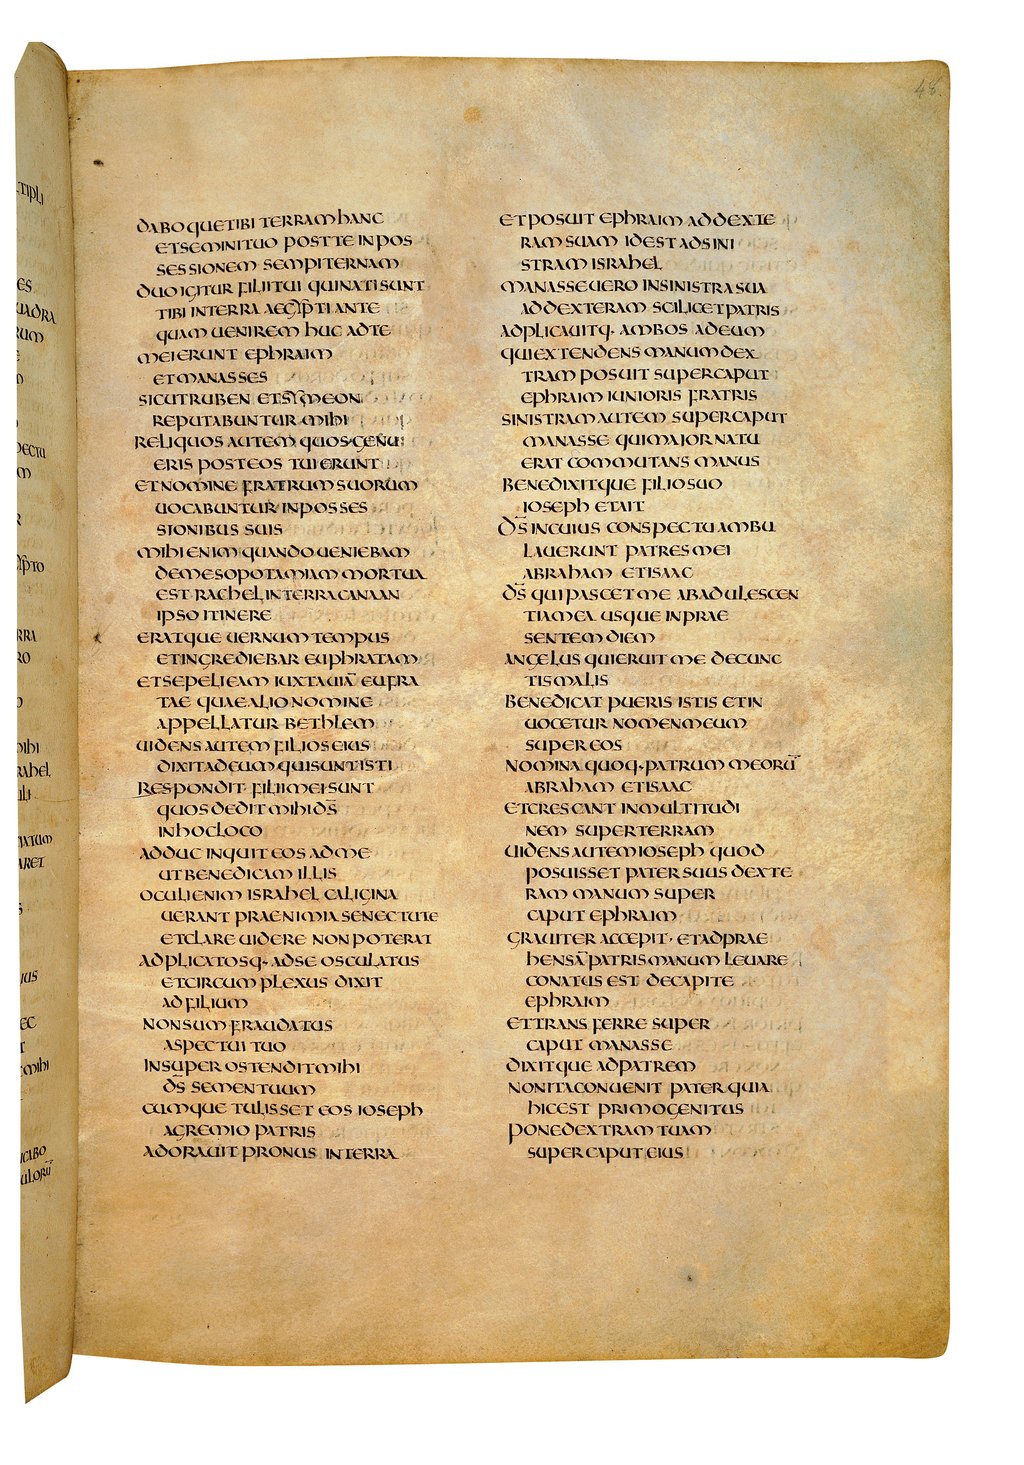 48
DABOQUETIBI TERRAM HANC
ETSEMINITUO POSTTE INPOS
SESSIONEM SEMPITERNAM
DUO IGITUR FILIITUI QUINATISUNT
TIBI INTERRA AEGYPTIANTE
QUAM UENIREM HUC ADTE
MEIERUNT EPHRAIM
ETMANASSES
SICUTRUBEN ETSYMEON
REPUTABUNTUR MIHI
RELIQUOS AUTEM QUOSGENU
ERIS POSTEOS TUIERUNT
ETNOMINE FRATRUM SUORUM
UOCABUNTUR INPOSSES
SIONIBUS SUIS
MIHI ENIM QUANDO UENIEBAM
DEMESOPOTAMIAM MORTUA
EST RACHEL INTERRACANAAN
IPSO ITINERE
ERATQUE UERNUM TEMPUS
ETINGREDIEBAR EUPHRATAM
ETSEPELIEAM IUXTAUIĀ EUFRA
TAE QUAEALIO NOMINE
APPELLATUR BETHLEM
UIDENS AUTEM FILIOS EIUS
DIXITADEUM QUISUNTISTI
RESPONDIT FILIIMEISUNT
QUOSDEDIT MIHIDS̄
INHOCLOCO
ADDUC INQUIT EOS ADME
UTBENEDICAM ILLIS
OCULIENIM ISRAHEL CALIGINA
UERANT PRAENIMIA SENECTUTE
ETCLARE UIDERE NONPOTERAT
ADPLICATOSQ· ADSE OSCULATUS
ETCIRCUMPLEXUS DIXIT
ADFILIUM
NONSUM FRAUDATUS
ASPECTUI TUO
INSUPER OSTENDITMIHI
DS̄ SEMENTUUM
CUMQUE TULISSET EOS IOSEPH
AGREMIO PATRIS
ADORAUIT PRONUS INTERRA
ETPOSUIT EPHRAIM ADDEXTE
RAM SUAM IDEST ADSINI
STRAM ISRAHEL
MANASSEUERO INSINISTRASUA
ADDEXTERAM SCILICETPATRIS
ADPLICAUITQ· AMBOS ADEUM
QUIEXTENDENS MANUMDEX
TRAM POSUIT SUPERCAPUT
EPHRAIM IUNIORIS FRATRIS
SINISTRAM AUTEM SUPERCAPUT
MANASSE QUIMAIORNATU
ERAT COMMUTANS MANUS
BENEDIXITQUE FILIOSUO
IOSEPH ETAIT
DS̄ INCUIUS CONSPECTU AMBU
LAUERUNT PATRESMEI
ABRAHAM ETISAAC
DS̄ QUIPASCETME ABADULESCEN
TIAMEA USQUE INPRAE
SENTEM DIEM
ANGELUS QUIERUITME DECUNC
TISMALIS
BENEDICAT PUERIS ISTIS ETIN
UOCETUR NOMENMEUM
SUPEREOS
NOMINA QUOQ·PATRUM MEORŪ
ABRAHAM ETISAAC
ETCRESCANT INMULTITUDI
NEM SUPERTERRAM
UIDENS AUTEM IOSEPH QUOD
POSUISSET PATERSUUS DEXTE
RAM MANUM SUPER
CAPUT EPHRAIM
GRAUITER ACCEPIT· ETADPRAE
HENSĀPATRISMANUM LEUARE
CONATUS EST DECAPITE
EPHRAIM
ETTRANSFERRE SUPER
CAPUT MANASSE
DIXITQUE ADPATREM
NONITACONUENIT PATER QUIA
HICEST PRIMOGENITUS
PONEDEXTRAM TUAM
SUPERCAPUT EIUS